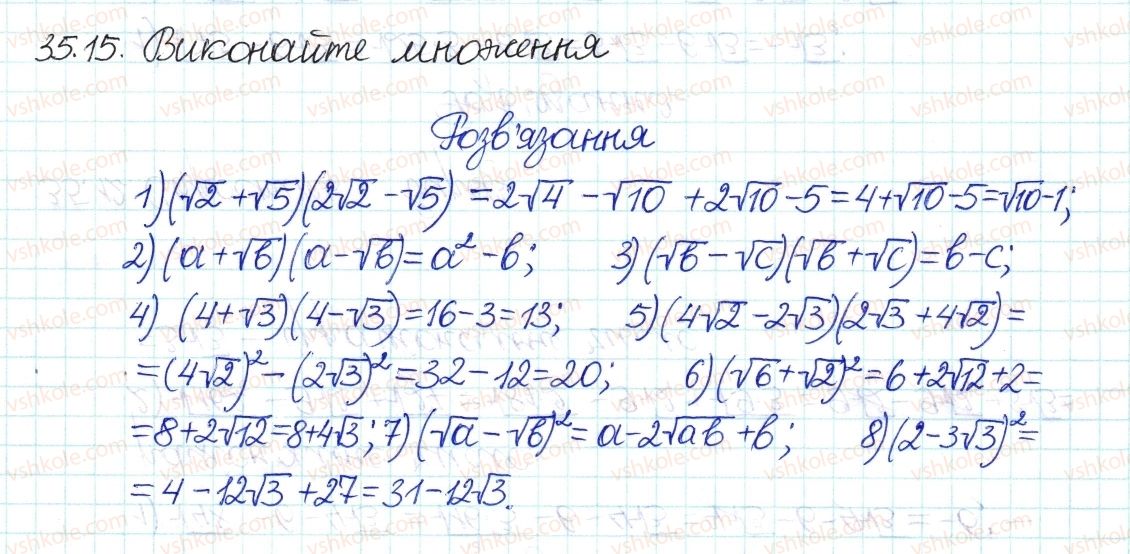 35.15. Виконайте множення
Розв'язання
1) (√2 + √5)(2√2 - √5) = 2√4 - √10 + 2√10 - 5 = 4 + √10 - 5 = √10 - 1;
2) (a + √b)(a - √b) = a² - b; 3) (√b - √c)(√b + √c) = b - c;
4) (4 + √3)(4 - √3) = 16 - 3 = 13; 5) (4√2 - 2√3)(2√3 + 4√2) =
= (4√2)² - (2√3)² = 32 - 12 = 20; 6) (√6 + √2)² = 6 + 2√12 + 2 =
= 8 + 2√12 = 8 + 4√3; 7) (√a - √b)² = a - 2√ab + b; 8) (2 - 3√3)² =
= 4 - 12√3 + 27 = 31 - 12√3.